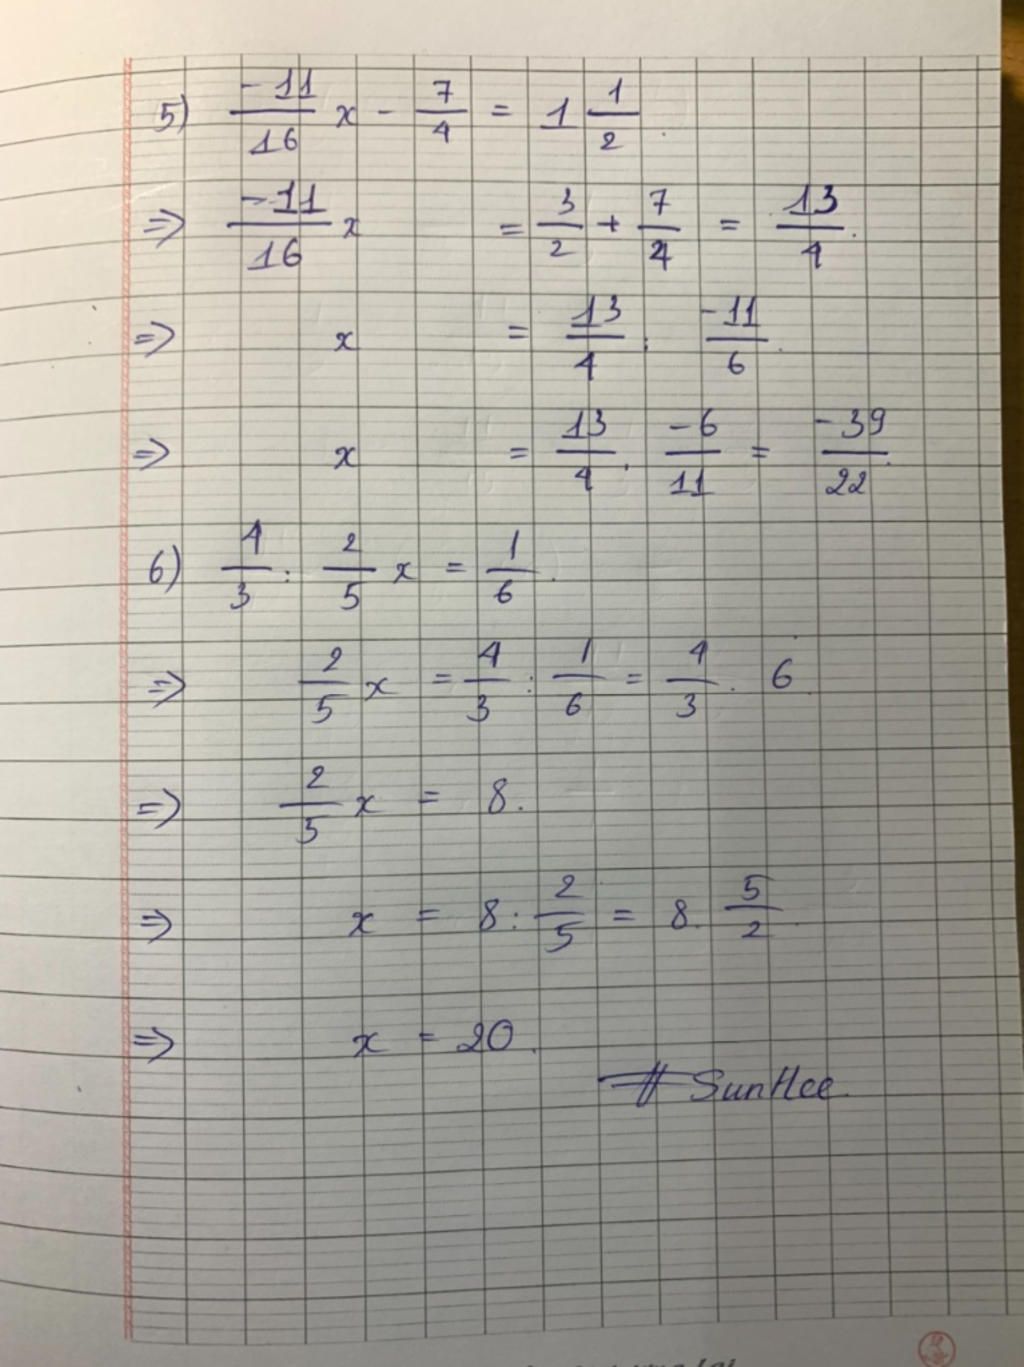 5) -11/16 x - 7/4 = 1 1/2.
=> -11/16 x = 3/2 + 7/4 = 13/4.
=> x = 13/4 : -11/6.
=> x = 13/4 . -6/11 = -39/22.
6) 4/3 : 2/5 x = 1/6.
=> 2/5 x = 4/3 : 1/6 = 4/3 . 6
=> 2/5 x = 8.
=> x = 8 : 2/5 = 8 . 5/2
=> x = 20.
# SunHee